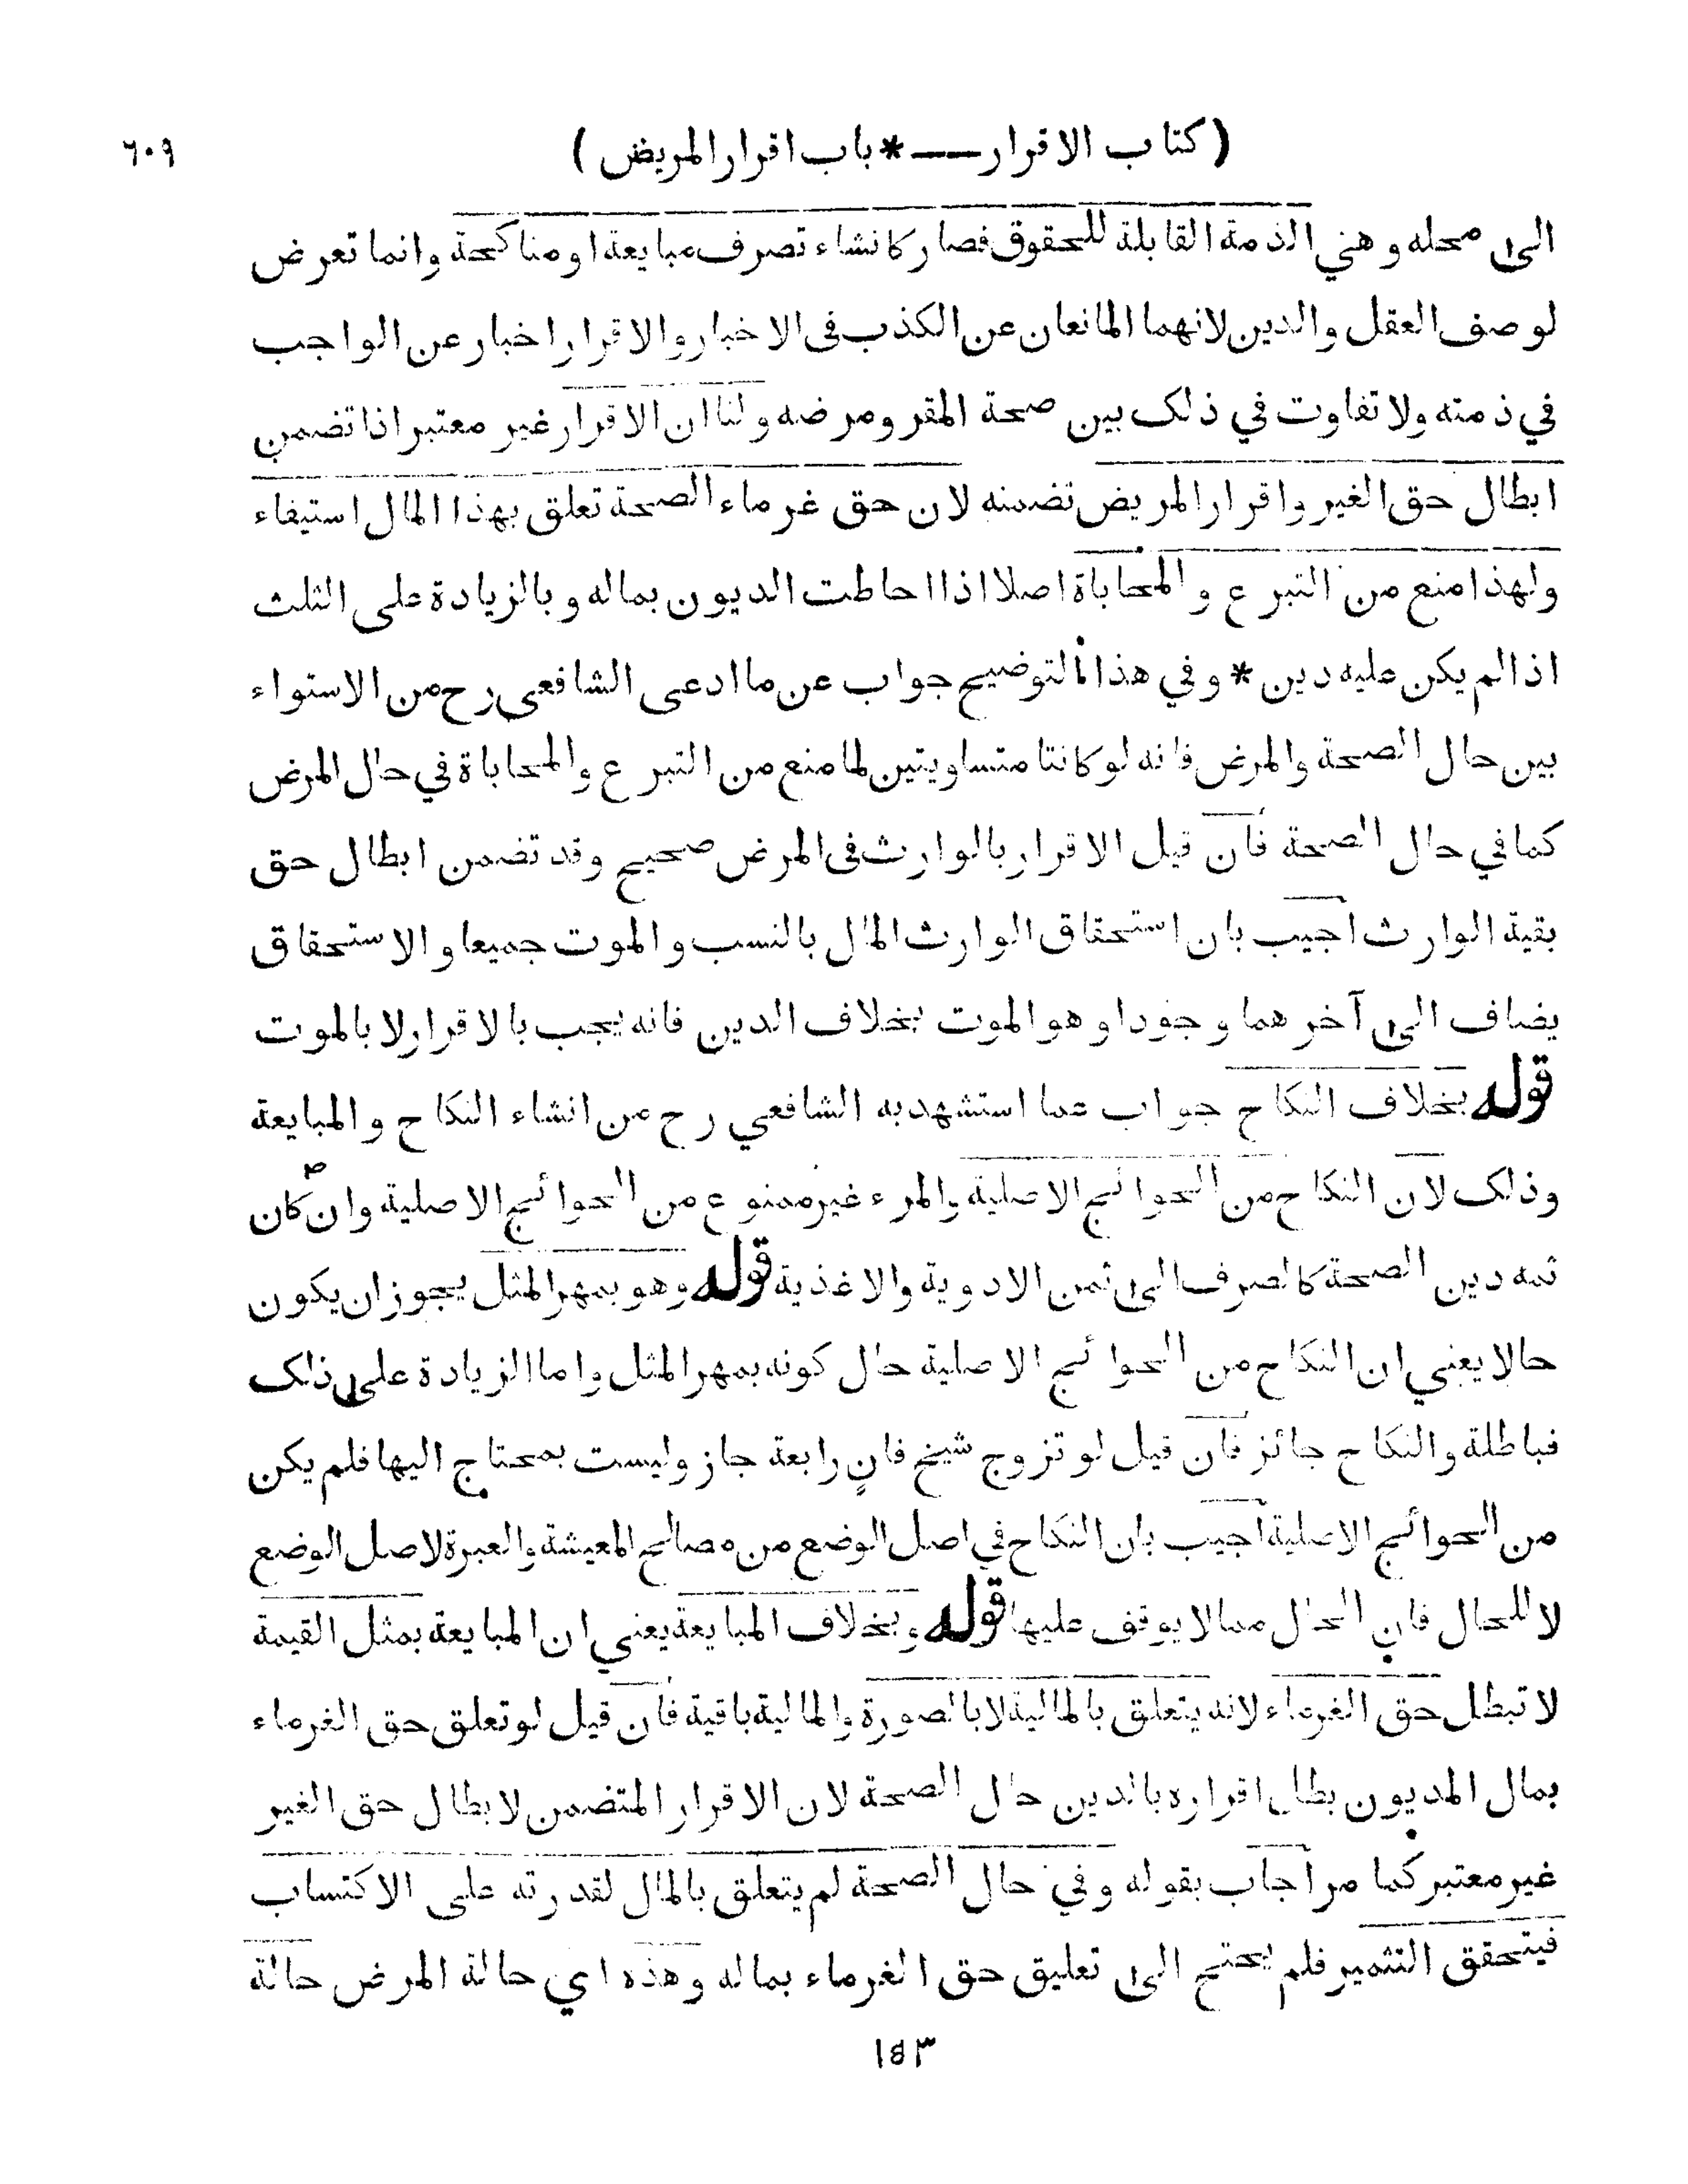 (كتاب الاقرار ـــ * باب اقرار المريض) ٦٠٩
الى محله وهي الذمة القابلة للحقوق فصار كانشاء تصرف مبايعة او مناكحة وانما تعرض
لوصف العقل والدين لانهما المانعان عن الكذب فى الاخبار والاقرار اخبار عن الواجب
في ذمته ولا تفاوت في ذلك بين صحة المقر ومرضه ولنا ان الاقرار غير معتبر اذا تضمن
ابطال حق الغير واقرار المريض تضمنه لان حق غرماء الصحة تعلق بهذا المال استيفاء
ولهذا منع من التبرع والمحاباة اصلا اذا احاطت الديون بماله وبالزيادة على الثلث
اذا لم يكن عليه دين * وفي هذا التوضيح جواب عن ما ادعى الشافعى رح من الاستواء
بين حال الصحة والمرض فانه لو كانتا متساويتين لما منع من التبرع والمحاباة في حال المرض
كما في حال الصحة فان قيل الاقرار بالوارث فى المرض صحيح وقد تضمن ابطال حق
بقية الوارث اجيب بان استحقاق الوارث المال بالنسب والموت جميعا والاستحقاق
يضاف الى آخرهما وجودا وهو الموت بخلاف الدين فانه يجب بالاقرار لا بالموت
قوله بخلاف النكاح جواب عما استشهد به الشافعي رح من انشاء النكاح والمبايعة
وذلك لان النكاح من الحوائج الاصلية والمرء غير ممنوع من الحوائج الاصلية وان كان
ثمه دين الصحة كالصرف الى ثمن الادوية والاغذية قوله وهو بمهر المثل يجوز ان يكون
حالا يعني ان النكاح من الحوائج الاصلية حال كونه بمهر المثل واما الزيادة على ذلك
فباطلة والنكاح جائز فان قيل لو تزوج شيخ فانٍ رابعة جاز وليست بمحتاج اليها فلم يكن
من الحوائج الاصلية اجيب بان النكاح في اصل الوضع من مصالح المعيشة والعبرة لاصل الوضع
لا للحال فان الحال مما لا يوقف عليها قوله وبخلاف المبايعة يعني ان المبايعة بمثل القيمة
لا تبطل حق الغرماء لانه يتعلق بالمالية لا بالصورة والمالية باقية فان قيل لو تعلق حق الغرماء
بمال المديون بطل اقراره بالدين حال الصحة لان الاقرار المتضمن لابطال حق الغير
غير معتبر كما مر اجاب بقوله وفي حال الصحة لم يتعلق بالمال لقدرته على الاكتساب
فيتحقق التثمير فلم يحتج الى تعليق حق الغرماء بماله وهذه اي حالة المرض حالة
١٥٣